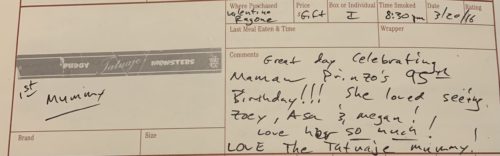 Where Purchased
Price
Box or Individual
Time Smoked
Date
Rating
Valentino
Gift
I
8:30pm
3/20/16
Last Meal Eaten & Time
Wrapper
PUDGY Tatuaje MONSTERS
1st
MUMMY
Brand
Size
Comments
Great day celebrating
Mamaw Prinzo's 95th
Birthday!!! She loved seeing
Zoey, Asa & megan!
Love her so much!!
LOVE The Tatuaje mummy.